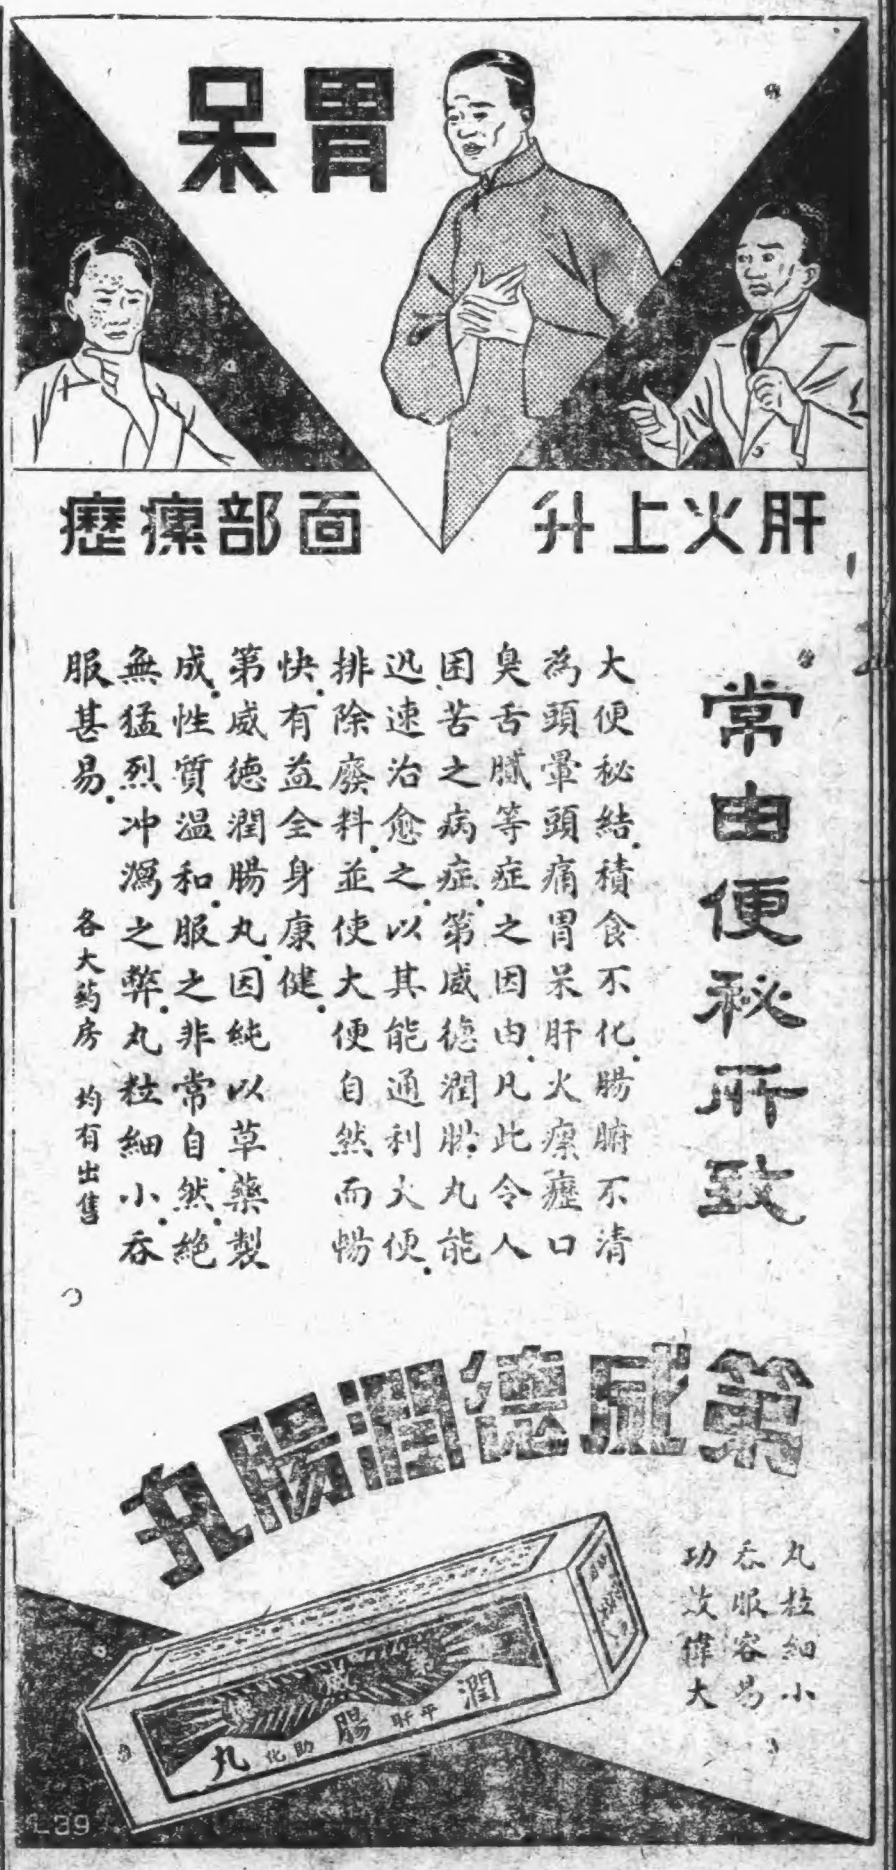 胃呆
肝火上升
面部瘰癧
常由便秘所致
大便秘結.積食不化.腸腑不清
為頭暈頭痛胃呆肝火瘰癧口
臭舌膩等症之因由.凡此令人
困苦之病症.第威德潤腸丸能
迅速治愈之.以其能通利大便.
排除廢料.並使大便自然而暢
快.有益全身康健.
第威德潤腸丸.因純以草藥製
成.性質溫和.服之非常自然.絕
無猛烈冲瀉之弊.丸粒細小.吞
服甚易.
各大药房 均有出售
第威德潤腸丸
丸粒細小
吞服容易
功效偉大
第威德
潤平肝腸助化丸
L39